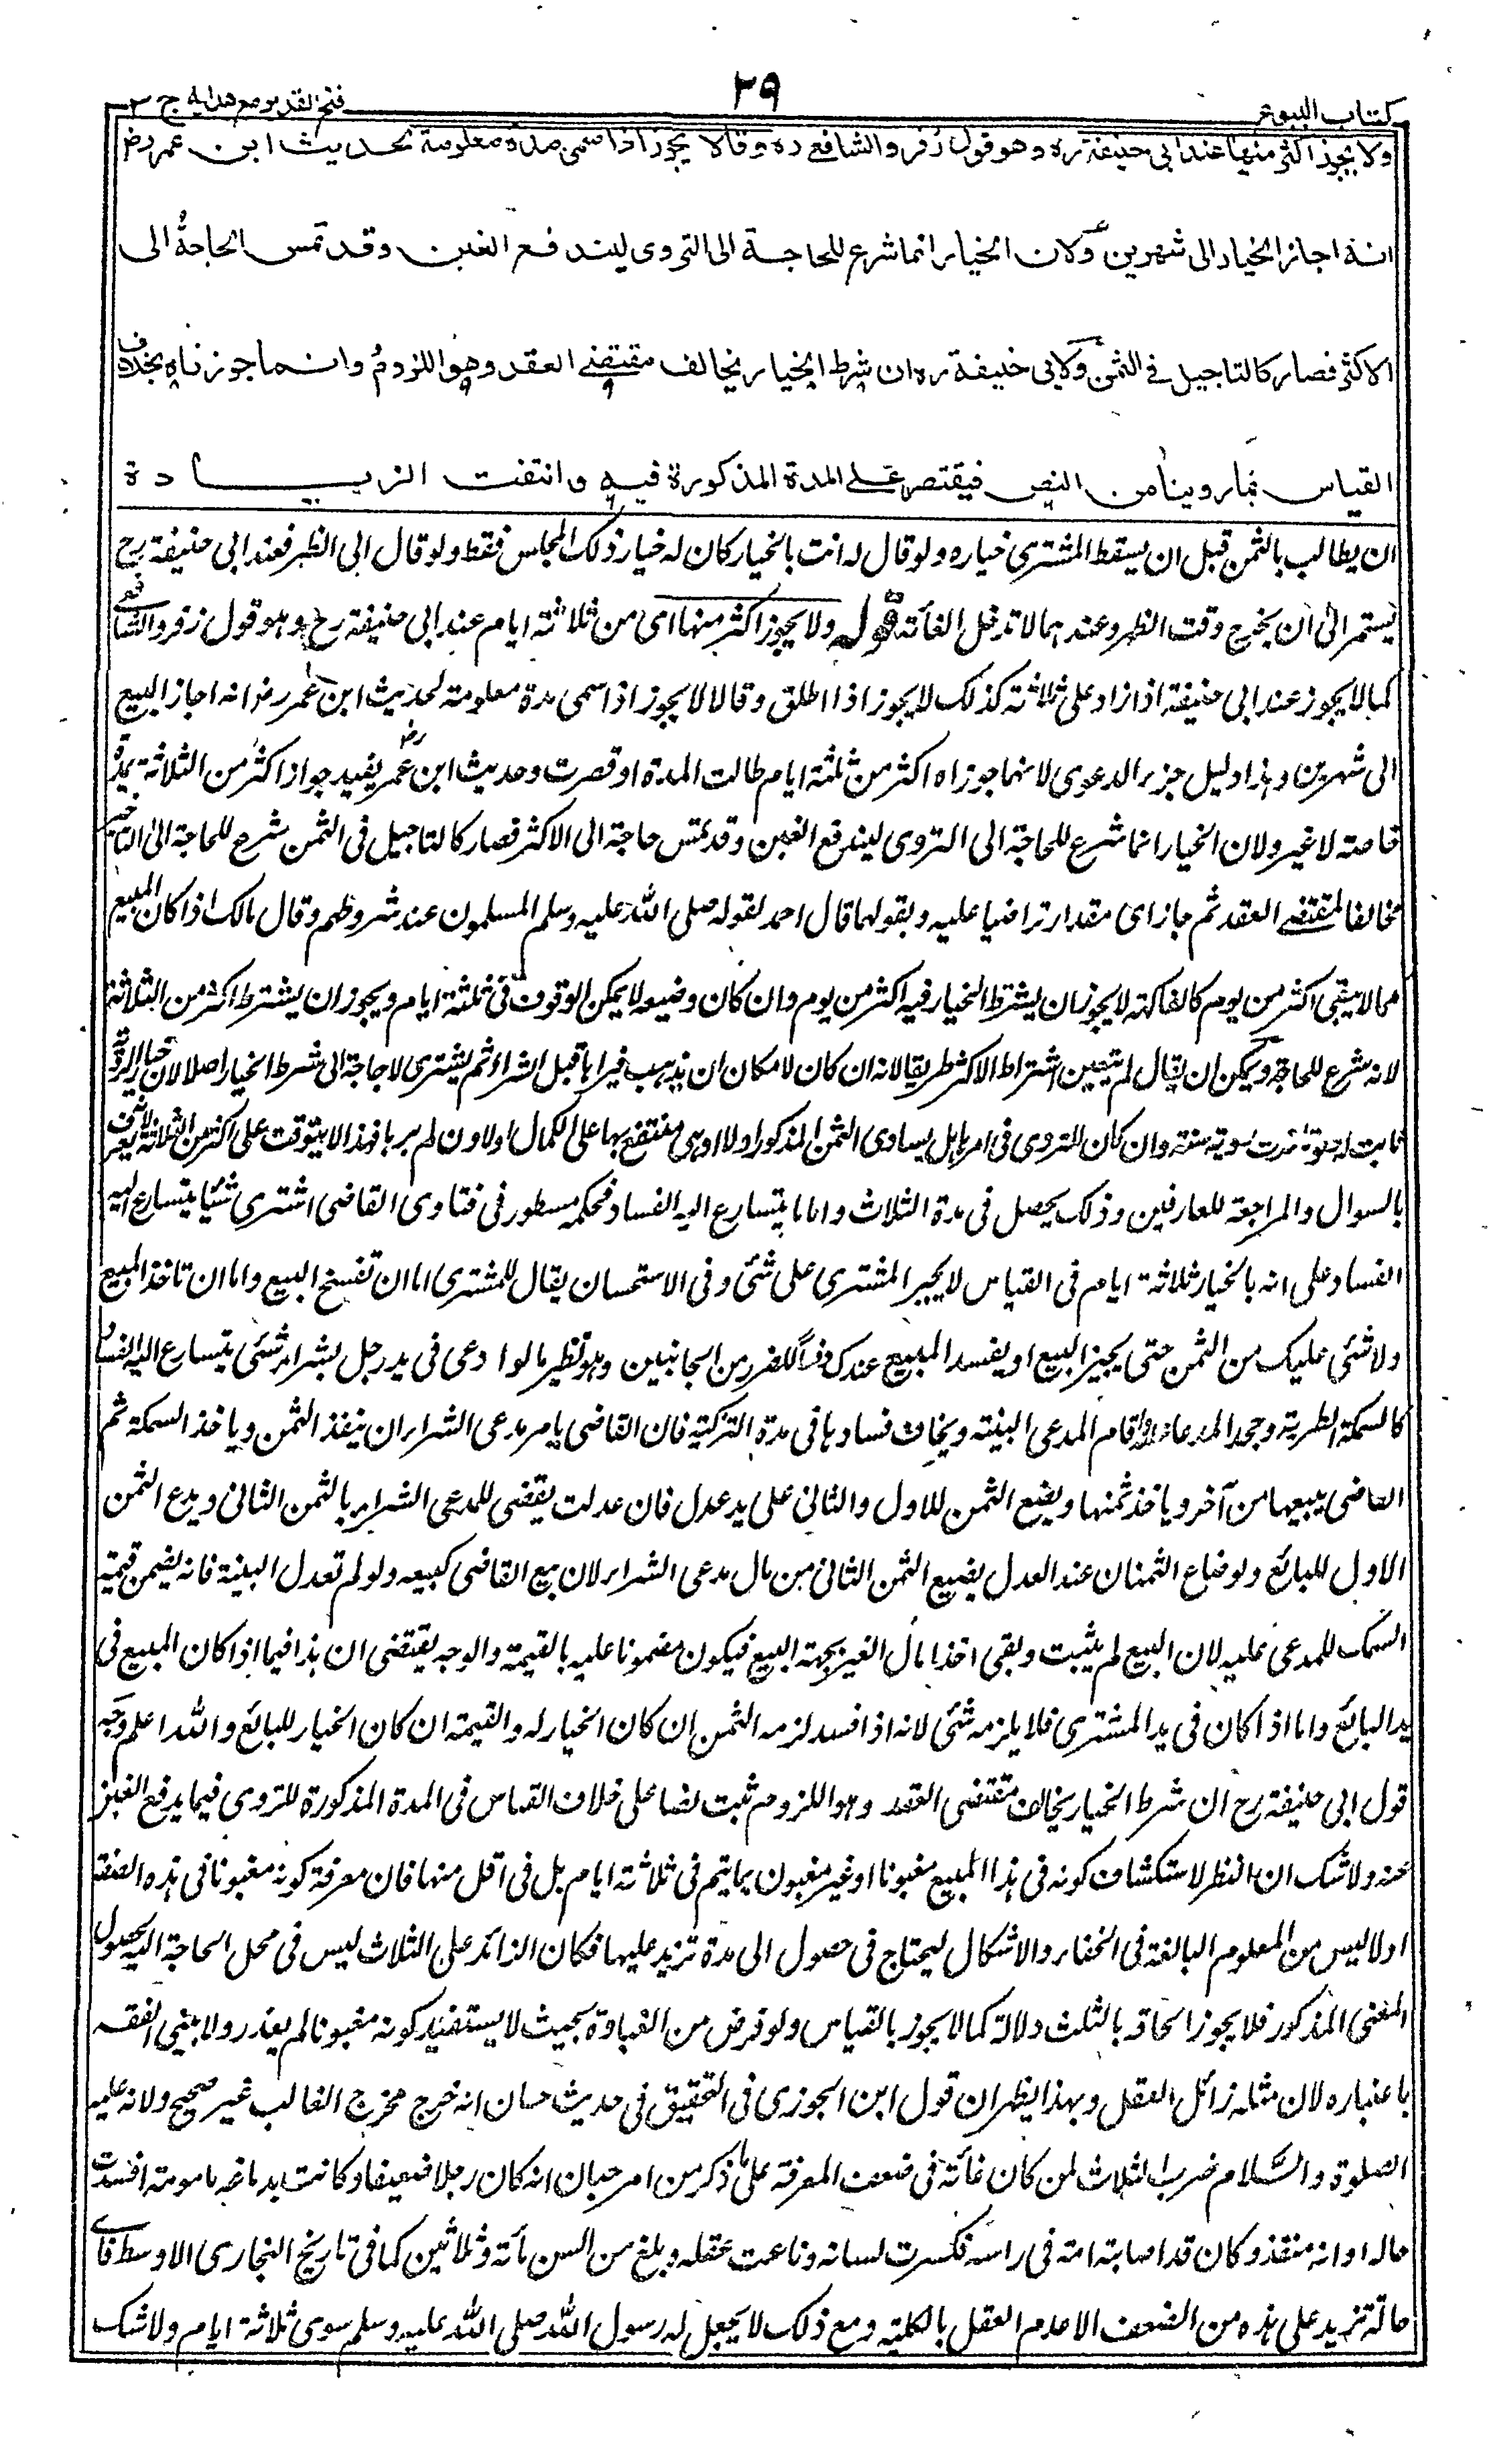 كتاب البيوع
٢٩
فتح القدير مع هدايه ج ٣
ولا يجوز اكثر منها عند ابى حنيفة ره وهو قول زفر والشافع ره وقالا يجوز اذا سمى مدة معلومة لحديث ابن عمر رض
انه اجاز الخيار الى شهرين ولان الخيار انما شرع للحاجة الى التروى ليندفع الغبن وقد تمس الحاجة الى
الاكثر فصار كالتاجيل فے الثمن ولابى حنيفة ره ان شرط الخيار يخالف مقتضے العقد وهو اللزوم وانما جوزناه بخلاف
القياس بما روينا من النص فيقتصر على المدة المذكورة فيه وانتفت الزيادة
ان يطالب بالثمن قبل ان يسقط المشترى خياره ولو قال له انت بالخيار كان له خيار ذلك المجلس فقط ولو قال الى الظهر فعند ابى حنيفة رح
يستمر الى ان يخرج وقت الظهر وعندهما لا تدخل الغاية قوله ولا يجوز اكثر منها اى من ثلاثة ايام عند ابى حنيفة رح وهو قول زفر والشافعے
كما لا يجوز عند ابى حنيفة اذا زاد على ثلاثة كذلك لا يجوز اذا اطلق وقالا لا يجوز اذا سمى مدة معلومة لحديث ابن عمر رض انه اجاز البيع
الى شهرين وهذا دليل جزء الدعوى لانهما جوزاه اكثر من ثلثة ايام طالت المدة او قصرت وحديث ابن عمر رض يفيد جواز اكثر من الثلاثة بمدة
خاصة لا غير ولان الخيار انما شرع للحاجة الى التروى ليندفع الغبن وقد تمس حاجة الى الاكثر فصار كالتاجيل فى الثمن شرع للحاجة الى التاخير
مخالفا لمقتضے العقد ثم جاز اى مقدار تراضيا عليه وبقولهما قال احمد لقوله صلى الله عليه وسلم المسلمون عند شروطهم وقال مالك اذا كان المبيع
مما لا يبقى اكثر من يوم كالفاكهة لا يجوز ان يشترط الخيار فيه اكثر من يوم وان كان وضيعه لا يمكن الوقوف فى ثلثة ايام ويجوز ان يشترط اكثر من الثلاثة
لانه شرع للحاجة ويمكن ان يقال لم يتعين اشتراط الاكثر طريقا لانه ان كان لامكان ان يذهب فيراها قبل الشراء ثم يشترى لا حاجة الى شرط الخيار اصلا لان خيار الرؤية
ثابت له ولو تاخرت رؤيته سنة وان كان للتروى فى امرها هل يساوى الثمن المذكور اولا او هى منتفع بها على الكمال اولا وان لم يرها فهذا لا يتوقف على اكثر من الثلاثة لانه يعرف
بالسوال والمراجعة للعارفين وذلك يحصل فى مدة الثلاث واما ما يتسارع اليه الفساد فحكمه مسطور فى فتاوى القاضى اشترى شيئا يتسارع اليه
الفساد على انه بالخيار ثلاثة ايام فى القياس لا يجبر المشترى على شئ وفى الاستحسان يقال للمشترى اما ان تفسخ البيع واما ان تاخذ المبيع
ولا شئ عليك من الثمن حتى يجيز البيع او يفسد المبيع عندك دفعا للضرر من الجانبين وهو نظير ما لو ادعى فى يد رجل بشراء شئى يتسارع اليه الفساد
كالسمكة الطرية وجحد المدعا عليه واقام المدعى البينة ويخاف فسادها فى مدة التزكية فان القاضى يامر مدعى الشراء ان ينقد الثمن وياخذ السمكة ثم
القاضى يبيعها من آخر وياخذ ثمنها ويضع الثمن للاول والثانى على يد عدل فان عدلت يقضى للمدعى الشراء بالثمن الثانى ويدع الثمن
الاول للبائع ولو ضاع الثمنان عند العدل يضيع الثمن الثانى من مال مدعى الشراء لان بيع القاضى كبيعه ولو لم تعدل البينة فانه يضمن قيمة
السمك للمدعى عليه لان البيع لم يثبت وبقى اخذا مال الغير بجهة البيع فيكون مضمونا عليه بالقيمة والوجه يقتضى ان هذا فيما اذا كان المبيع فى
يد البائع واما اذا كان فى يد المشترى فلا يلزمه شئى لانه اذا فسد لزمه الثمن ان كان الخيار له والقيمة ان كان الخيار للبائع والله اعلم وجه
قول ابى حنيفة رح ان شرط الخيار يخالف مقتضى العقد وهو اللزوم ثبت نصا على خلاف القياس فى المدة المذكورة للتروى فيما يدفع الغبن
عنه ولا شك ان النظر لاستكشاف كونه فى هذا المبيع مغبونا او غير مغبون مما يتم فى ثلاثة ايام بل فى اقل منها فان معرفة كونه مغبونا فى هذه الصفقة
اولا ليس من المعلوم البالغة فى الخفاء والاشكال ليحتاج فى حصول الى مدة تزيد عليها فكان الزائد على الثلاث ليس فى محل الحاجة اليه لحصول
المعنى المذكور فلا يجوز الحاقه بالثلث دلالة كما لا يجوز بالقياس ولو فرض من الغباوة بحيث لا يستفيد كونه مغبونا لم يعذر ولا يبنى الفقه
باعتباره لان مثله زائل العقل وبهذا يظهر ان قول ابن الجوزى فى التحقيق فى حديث حسان انه خرج مخرج الغالب غير صحيح ولانه عليه
الصلوة والسلام ضرب الثلاث لمن كان غاية فى ضعف المعرفة على ما ذكر من امر حبان انه كان رجلا ضعيفا وكانت بدماغه مامومة افسدت
حاله او انه منقذ وكان قد اصابته امة فى راسه فكسرت لسانه ونازعت عقله وبلغ من السن مأئة وثلاثين كما فى تاريخ البخارى الاوسط فاى
حالة تزيد على هذه من الضعف الا عدم العقل بالكلية ومع ذلك لا يجعل له رسول الله صلى الله عليه وسلم سوى ثلاثة ايام ولا شك